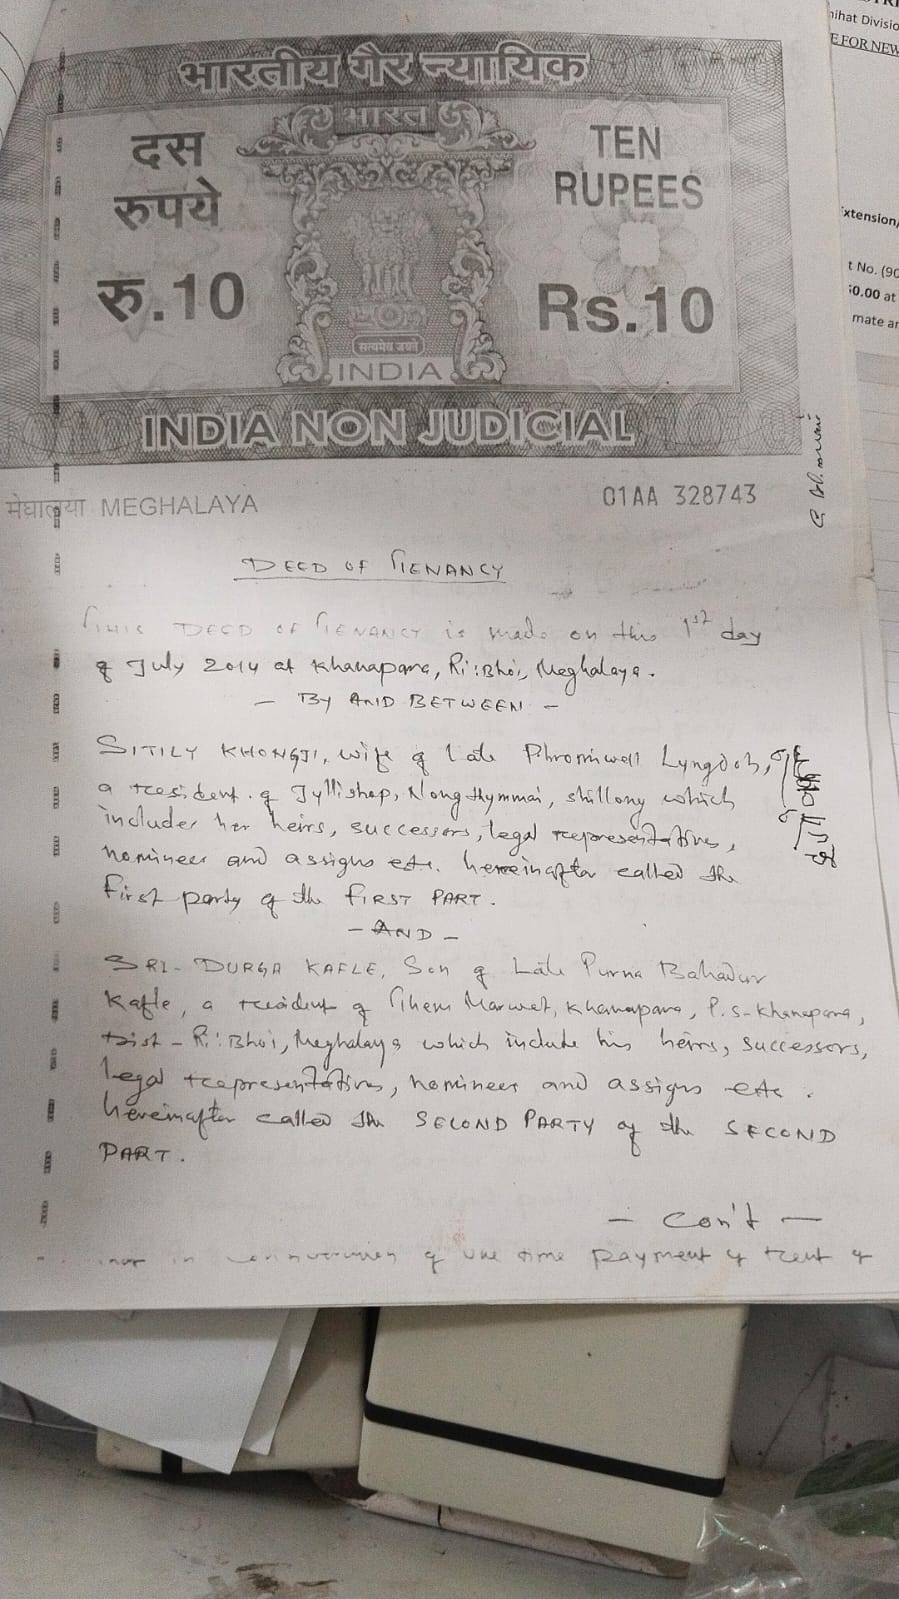 भारतीय गैर न्यायिक
भारत
दस
रुपये
रु.10
TEN
RUPEES
Rs.10
सत्यमेव जयते
INDIA
INDIA NON JUDICIAL
मेघालया MEGHALAYA
01AA 328743
DEED OF TENANCY
THIS DEED OF TENANCY is made on this 1st day
of July 2014 at Khanapara, Ri:Bhoi, Meghalaya.
- BY AND BETWEEN -
SITILY KHONGJI, wife of Late Phromiwell Lyngdoh,
a resident of Jyllishop, Nongthymmai, Shillong which
includes her heirs, successors, legal representatives,
nominees and assigns etc. hereinafter called the
First party of the FIRST PART.
- AND -
SRI- DURGA KAFLE, Son of Late Purna Bahadur
Kafle, a resident of Them Marwet, Khanapara, P.S-Khanapara,
Dist - Ri:Bhoi, Meghalaya which include his heirs, successors,
legal representatives, nominees and assigns etc.
hereinafter called the SECOND PARTY of the SECOND
PART.
- Con't -
in of one time payment of rent of
nihat Divisio
E FOR NEW
xtension/
t No. (90
0.00 at
mate an